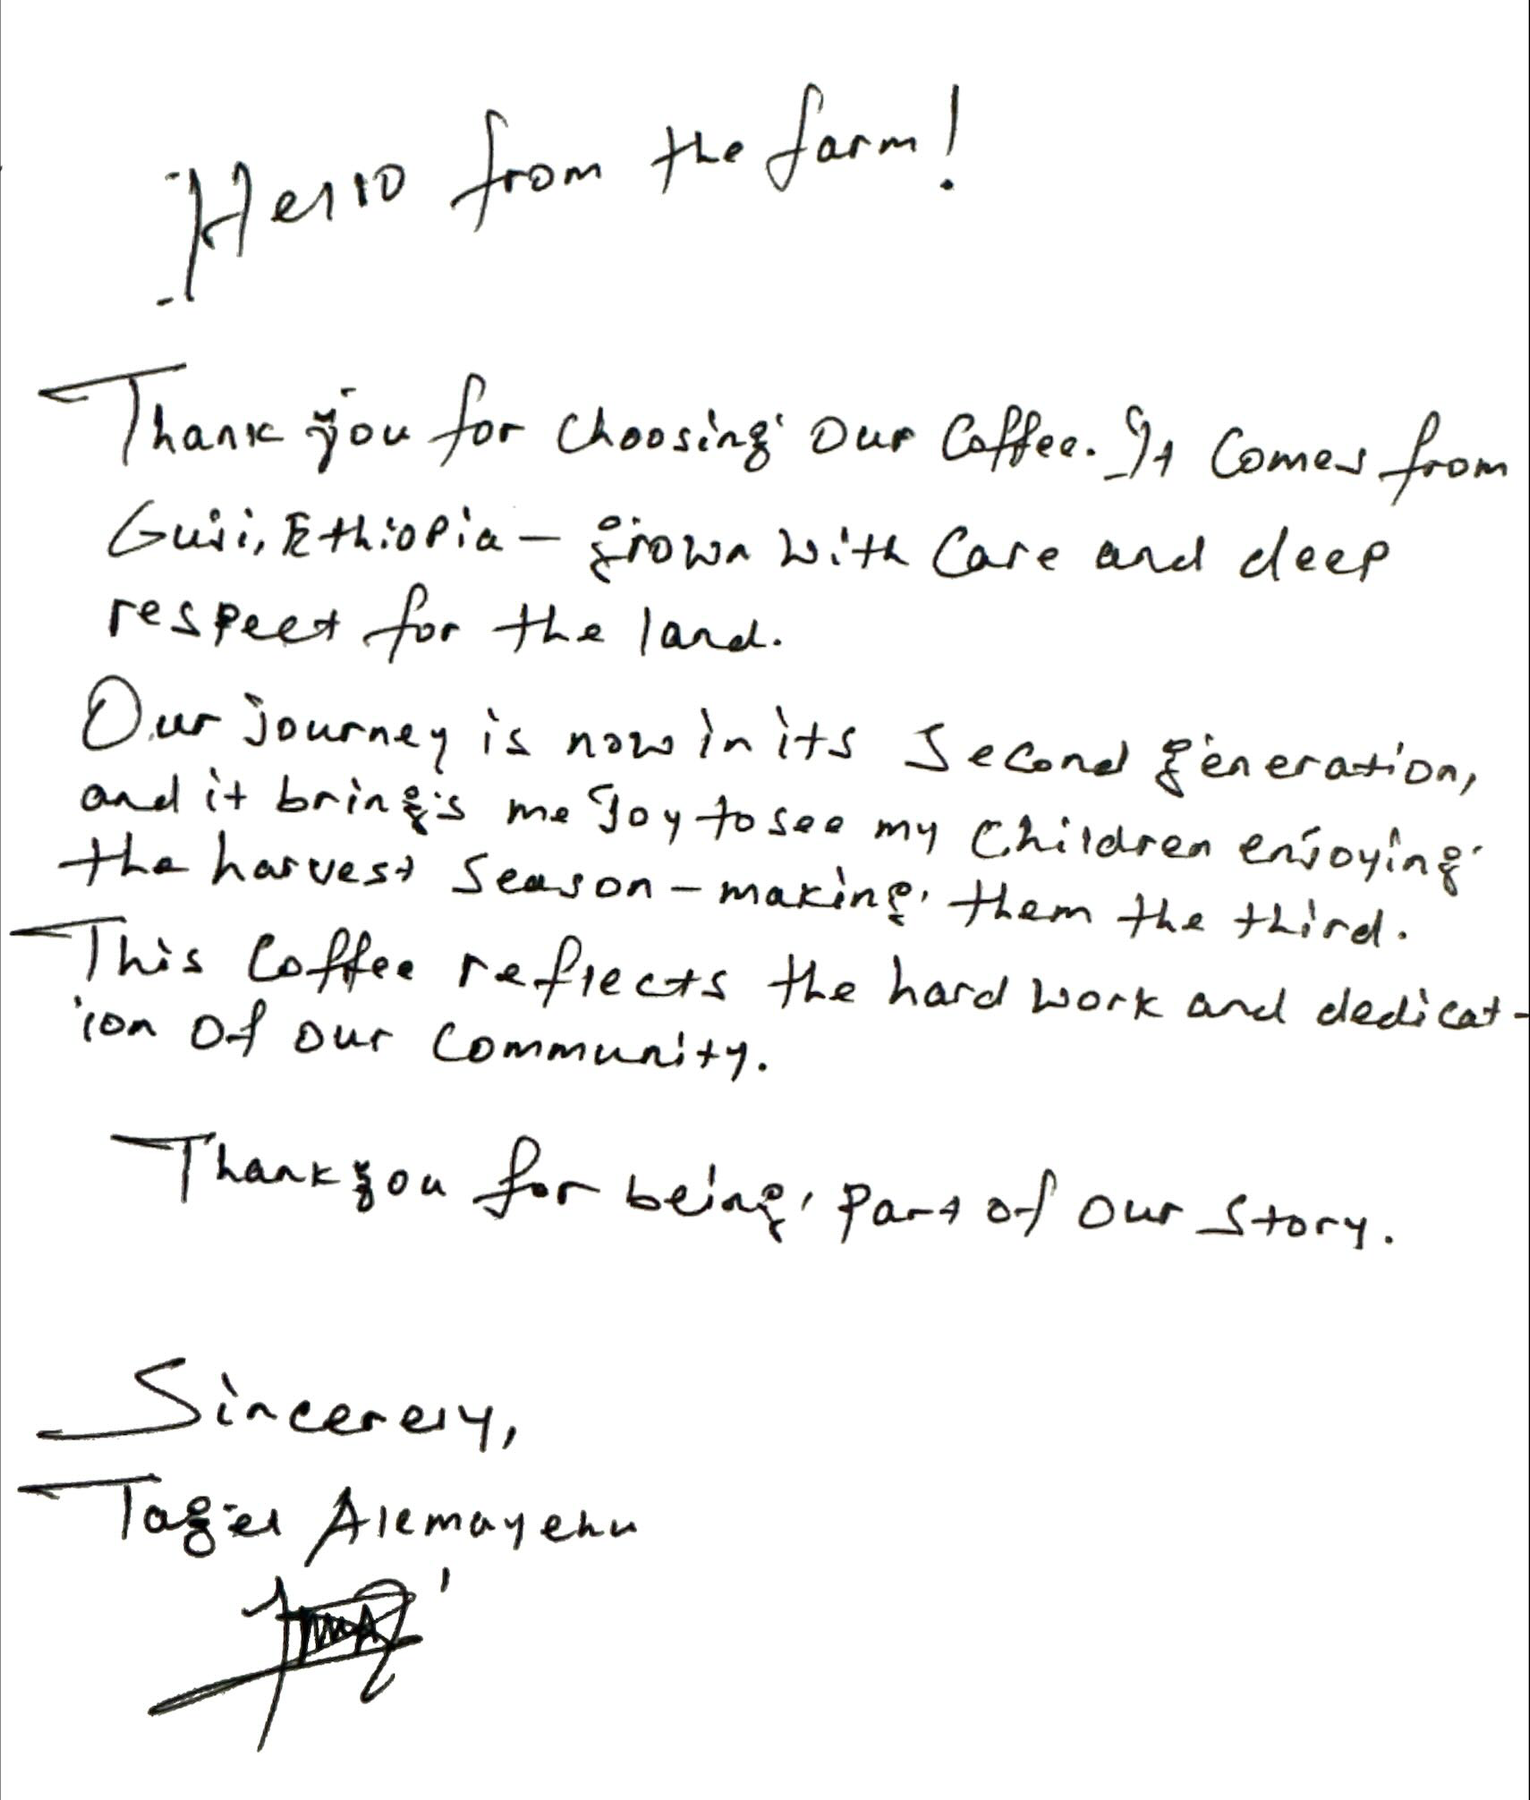 Hello from the farm!
Thank you for choosing our coffee. It comes from
Guji, Ethiopia – grown with care and deep
respect for the land.
Our journey is now in its second generation,
and it brings me joy to see my children enjoying
the harvest season – making them the third.
This coffee reflects the hard work and dedicat-
ion of our community.
Thank you for being part of our story.
Sincerely,
Tagel Alemayehu